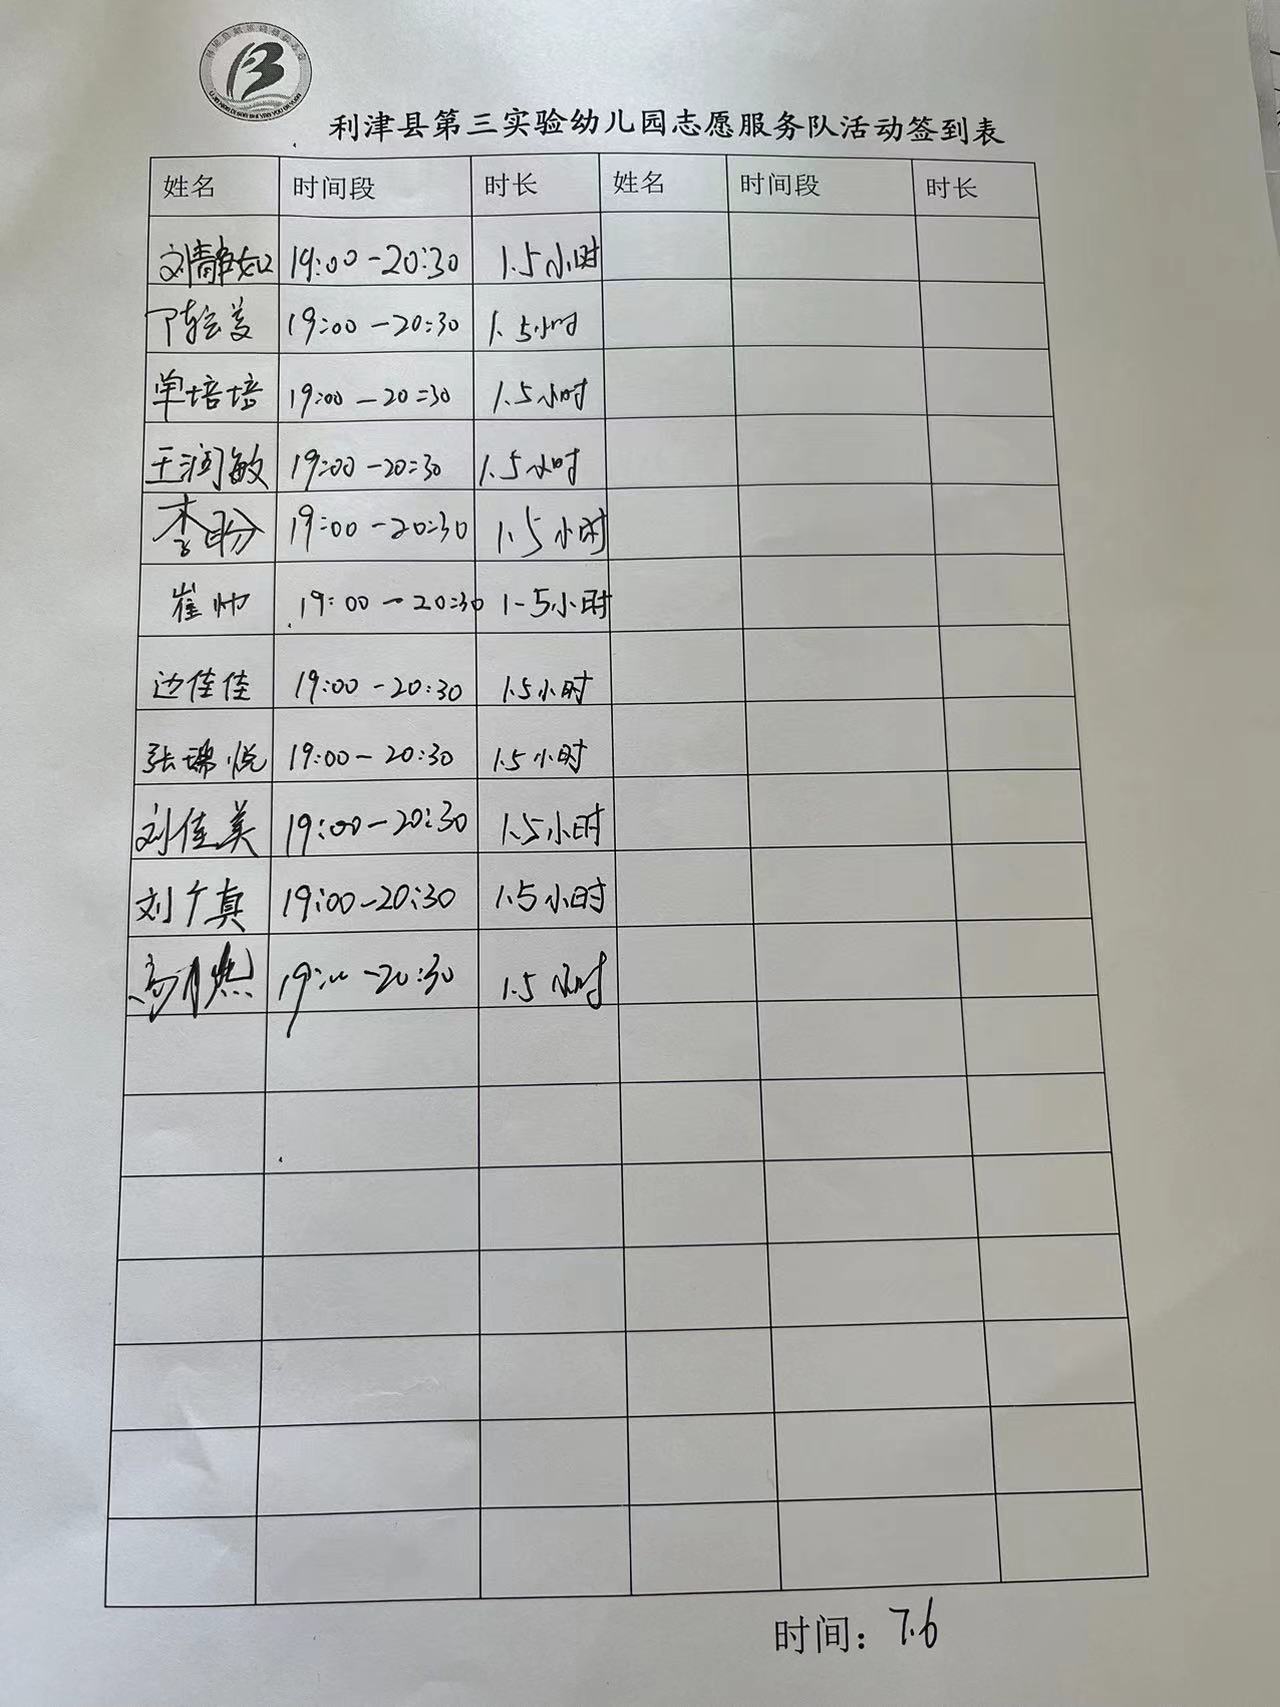 利津县第三实验幼儿园志愿服务队活动签到表
姓名 时间段 时长 姓名 时间段 时长
刘静如 19:00-20:30 1.5小时
19:00-20:30 1.5小时
单培培 19:00-20:30 1.5小时
王润敏 19:00-20:30 1.5小时
李盼 19:00-20:30 1.5小时
崔帅 19:00-20:30 1-5小时
边佳佳 19:00-20:30 1.5小时
张瑞悦 19:00-20:30 1.5小时
刘佳美 19:00-20:30 1.5小时
刘广真 19:00-20:30 1.5小时
19:00-20:30 1.5小时
时间：7.6